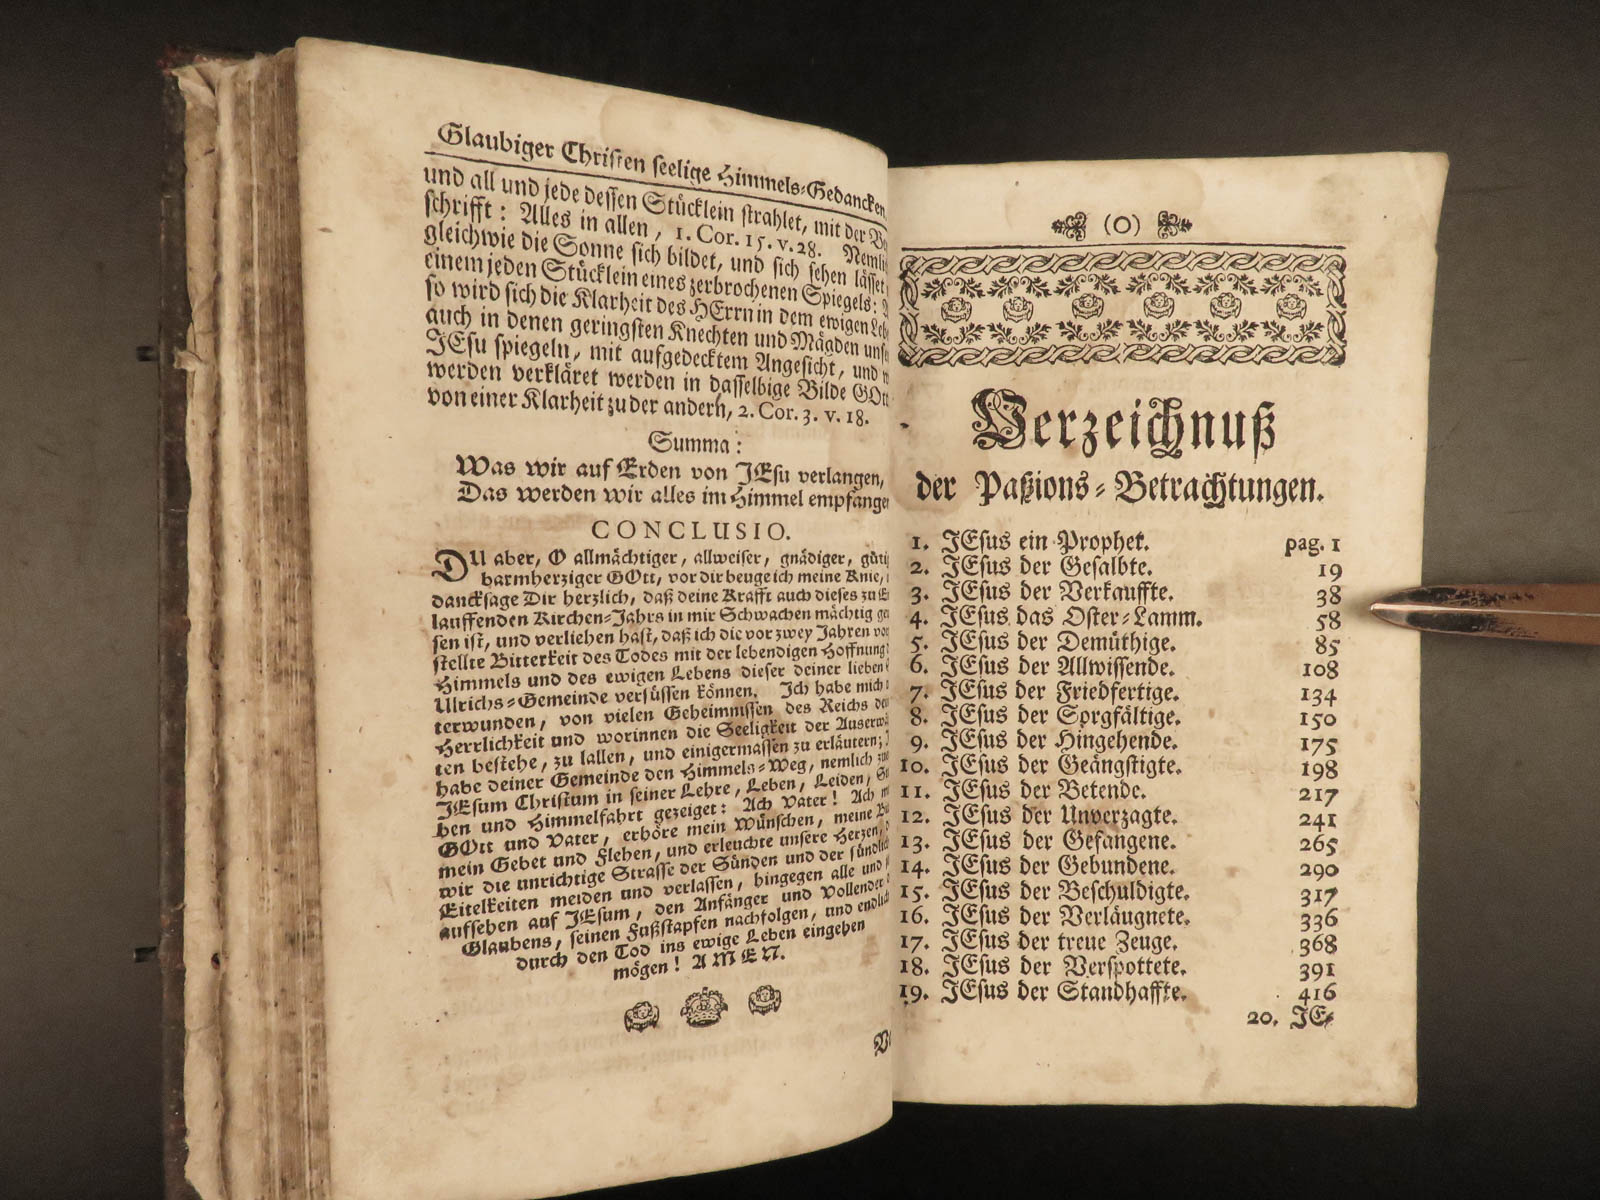 Glaubiger Christen seelige Himmels-Gedancken,
und all und jede dessen Stücklein strahlet, mit der
schrifft: Alles in allen, 1. Cor. 15. v. 28. Nemli
gleichwie die Sonne sich bildet, und sich sehen lässet
einem jeden Stücklein eines zerbrochenen Spiegels:
so wird sich die Klarheit des HErrn in dem ewigen Leb
auch in denen geringsten Knechten und Mägden unse
JEsu spiegeln, mit aufgedecktem Angesicht, und
werden verkläret werden in dasselbige Bilde GOtt
von einer Klarheit zu der andern, 2. Cor. 3. v. 18.
Summa:
Was wir auf Erden von JEsu verlangen,
Das werden wir alles im Himmel empfange
CONCLUSIO.
DU aber, O allmächtiger, allweiser, gnädiger, güti
barmherziger GOtt, vor dir beuge ich meine Knie,
dancksage Dir herzlich, daß deine Krafft auch dieses zu E
lauffenden Kirchen-Jahrs in mir Schwachen mächtig ge
sen ist, und verliehen hast, daß ich die vor zwey Jahren vor
stellte Bitterkeit des Todes mit der lebendigen Hoffnung
Himmels und des ewigen Lebens dieser deiner lieben
Ulrichs-Gemeinde versüssen können. Ich habe mich
terwunden, von vielen Geheimnissen des Reichs de
Herrlichkeit und worinnen die Seeligkeit der Auserw
ten bestehe, zu lallen, und einigermassen zu erläutern;
habe deiner Gemeinde den Himmels-Weg, nemlich
JEsum Christum in seiner Lehre, Leben, Leiden, St
ben und Himmelfahrt gezeiget: Ach Vater! Ach m
GOtt und Vater, erhöre mein Wünschen, meine
mein Gebet und Flehen, und erleuchte unsere Herzen,
wir die unrichtige Strasse der Sünden und der sündli
Eitelkeiten meiden und verlassen, hingegen alle und
aufsehen auf JEsum, den Anfänger und Vollender
Glaubens, seinen Fußstapfen nachfolgen, und endlic
durch den Tod ins ewige Leben eingehen
mögen! AMEN.
(O)
Verzeichnuß
der Paßions-Betrachtungen.
1. JEsus ein Prophet. pag. 1
2. JEsus der Gesalbte. 19
3. JEsus der Verkauffte. 38
4. JEsus das Oster-Lamm. 58
5. JEsus der Demüthige. 85
6. JEsus der Allwissende. 108
7. JEsus der Friedfertige. 134
8. JEsus der Sorgfältige. 150
9. JEsus der Hingehende. 175
10. JEsus der Geängstigte. 198
11. JEsus der Betende. 217
12. JEsus der Unverzagte. 241
13. JEsus der Gefangene. 265
14. JEsus der Gebundene. 290
15. JEsus der Beschuldigte. 317
16. JEsus der Verläugnete. 336
17. JEsus der treue Zeuge. 368
18. JEsus der Verspottete. 391
19. JEsus der Standhaffte. 416
20. JE-